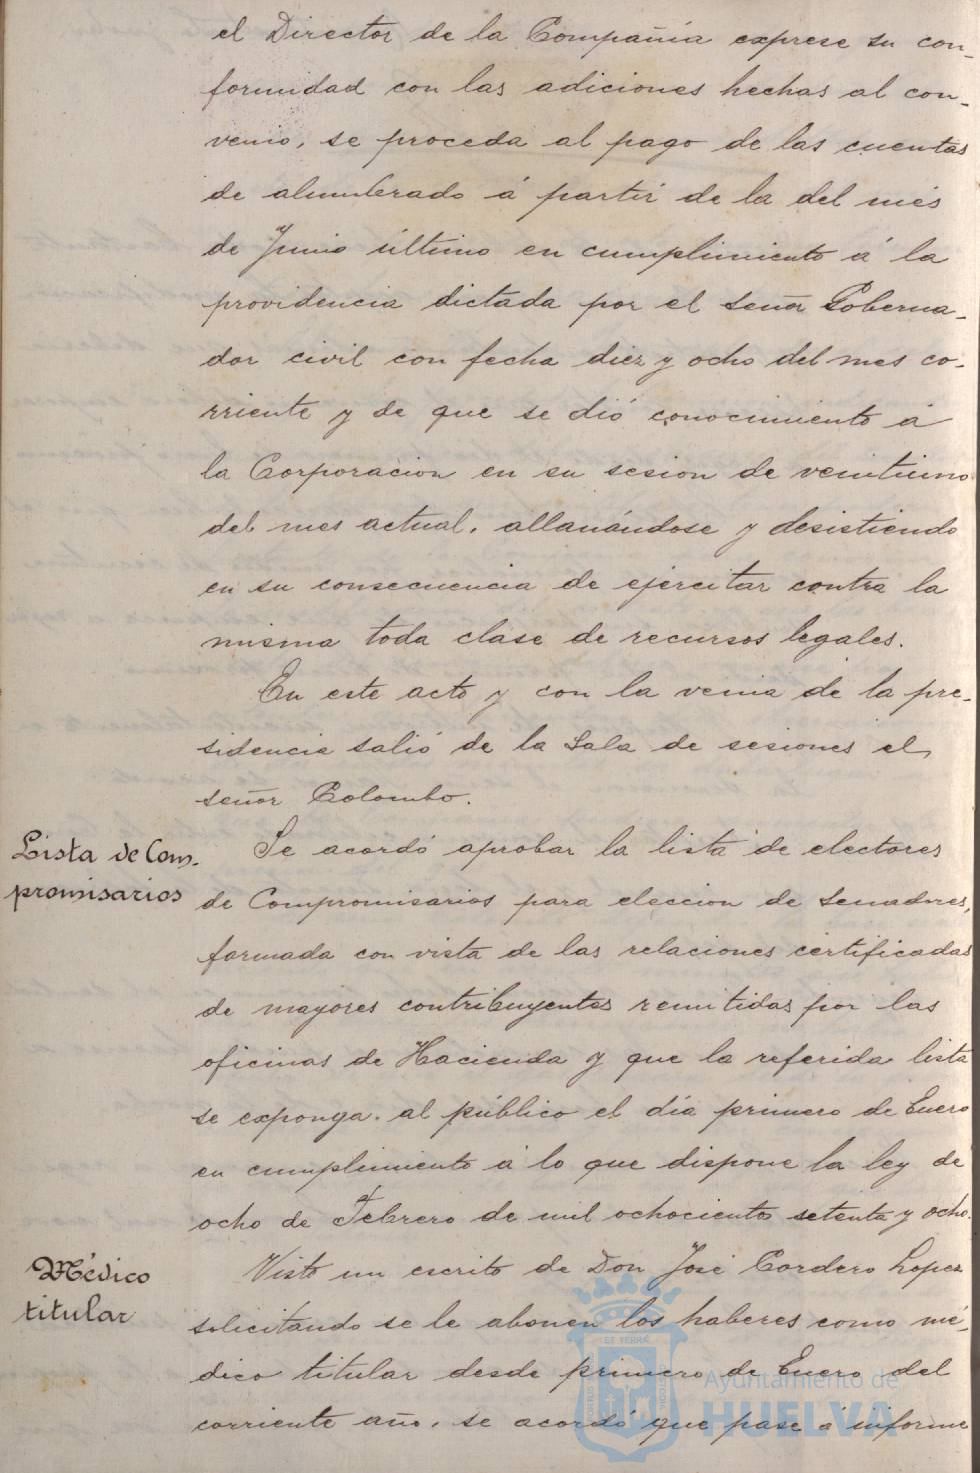 el Director de la Compañía exprese su con-
formidad con las adiciones hechas al con-
venio, se proceda al pago de las cuentas
de alumbrado á partir de la del més
de Junio último en cumplimiento á la
providencia dictada por el Señor Goberna-
dor civil con fecha diez y ocho del mes co-
rriente y de que se dió conocimiento á
la Corporación en su sesion de veintiuno
del mes actual, allanándose y desistiendo
en su consecuencia de ejercitar contra la
misma toda clase de recursos legales.
En este acto y con la venia de la pre-
sidencia salió de la Sala de sesiones el
señor Colombo.
Lista de Com-
promisarios
Se acordó aprobar la lista de electores
de Compromisarios para eleccion de Senadores,
formada con vista de las relaciones certificadas
de mayores contribuyentes remitidas por las
oficinas de Hacienda y que la referida lista
se exponga al público el día primero de Enero
en cumplimiento á lo que dispone la ley de
ocho de Febrero de mil ochociento setenta y ocho.
Médico
titular
Visto un escrito de Don José Cordero Lopez
solicitando se le abonen los haberes como mé-
dico titular desde primero de Enero del
corriente año, se acordó que pase á informe
Ayuntamiento de
HUELVA